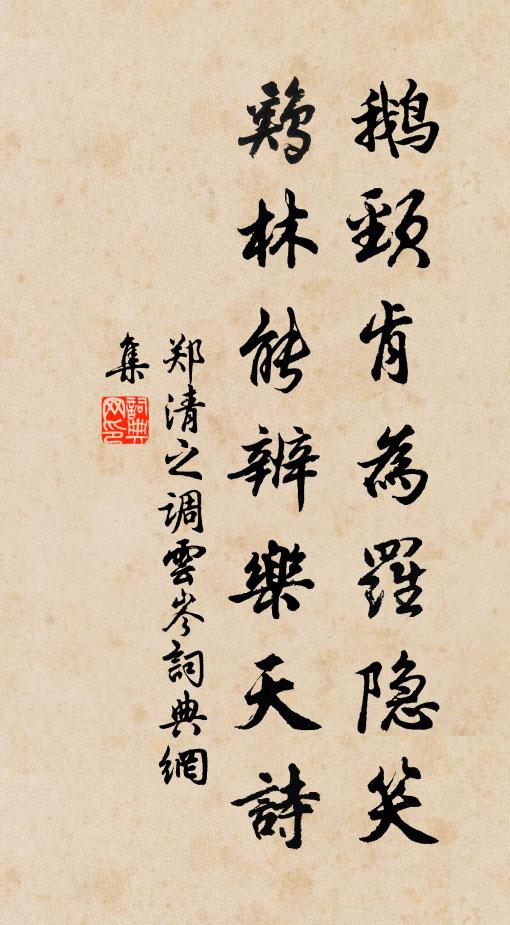 鹅頸肯為羅隐笑
鷄林能辨樂天詩
郑清之調雲岑詞典網
集
詞典网印